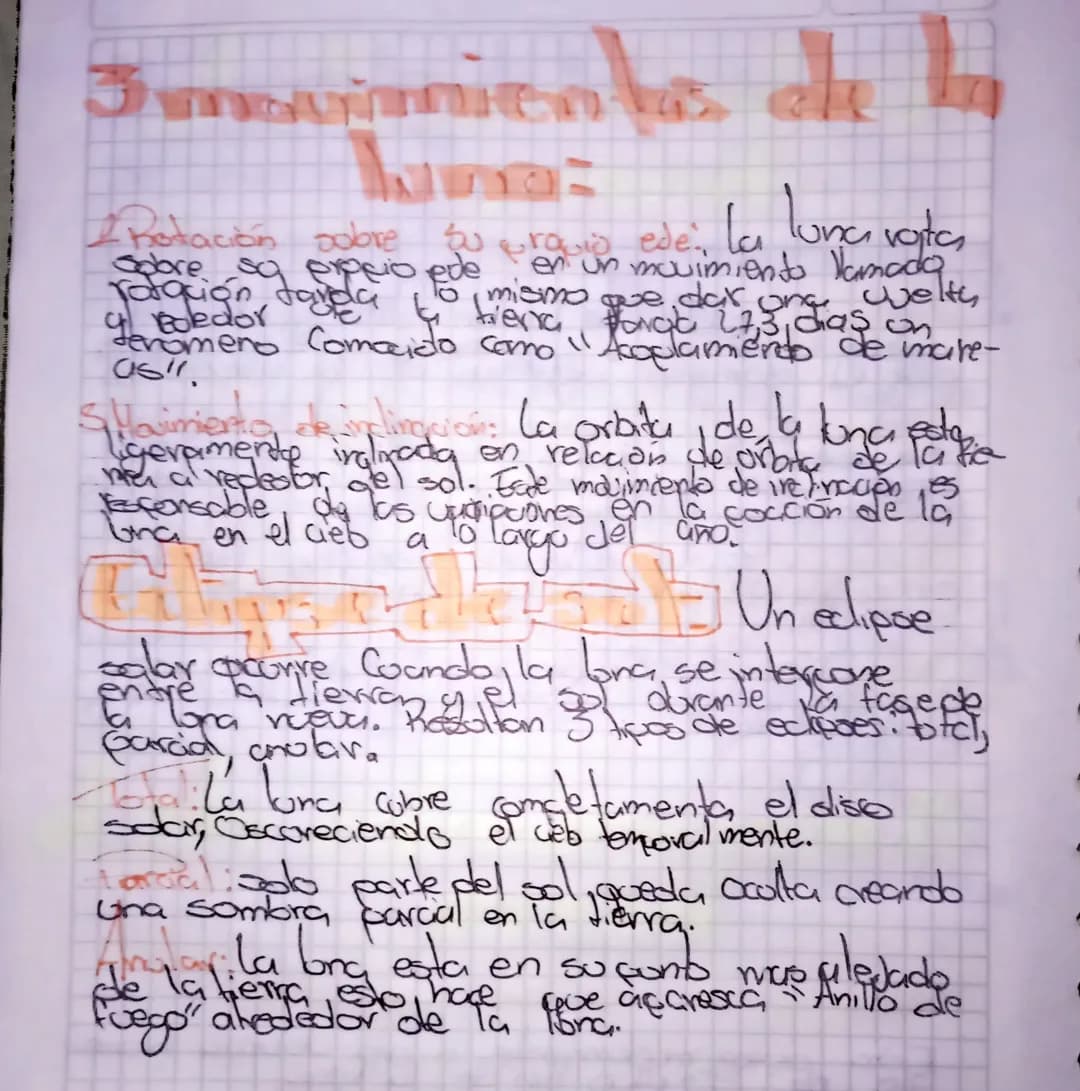 3 movimientos de la
luna:
Rotación sobre su propio ede: La luna rota
sobre su propio ede en un movimiento llamado
rotación tarda lo mismo que dar una vuelta
al rededor de la tierra 27,3 dias un
fenomeno Conocido como "Acoplamiento de mare-
as".
Movimiento de inclinación: La orbita de la luna esta
ligeramente inclinada en relación de orbita de la tie
rra al rededor del sol. Este movimiento de inclinación es
responsable de las variaciones en la cocción de la
luna en el cielo a lo largo del año.
Eclipse de sol: Un eclipse
solar ocurre Cuando la luna se interpone
entre la tierra y el sol durante la fase de
la luna nueva. Resultan 3 tipos de eclipses: total,
parcial, anular.
Total: La luna cubre completamenta el disco
solar, Oscoreciendo el cielo temporalmente.
Parcial: solo parte del sol queda oculta creando
una sombra parcial en la tierra.
Anular: La luna esta en su punto mas alejado
de la tierra, esto hace que aparesca "Anillo de
fuego" alrededor de la luna.